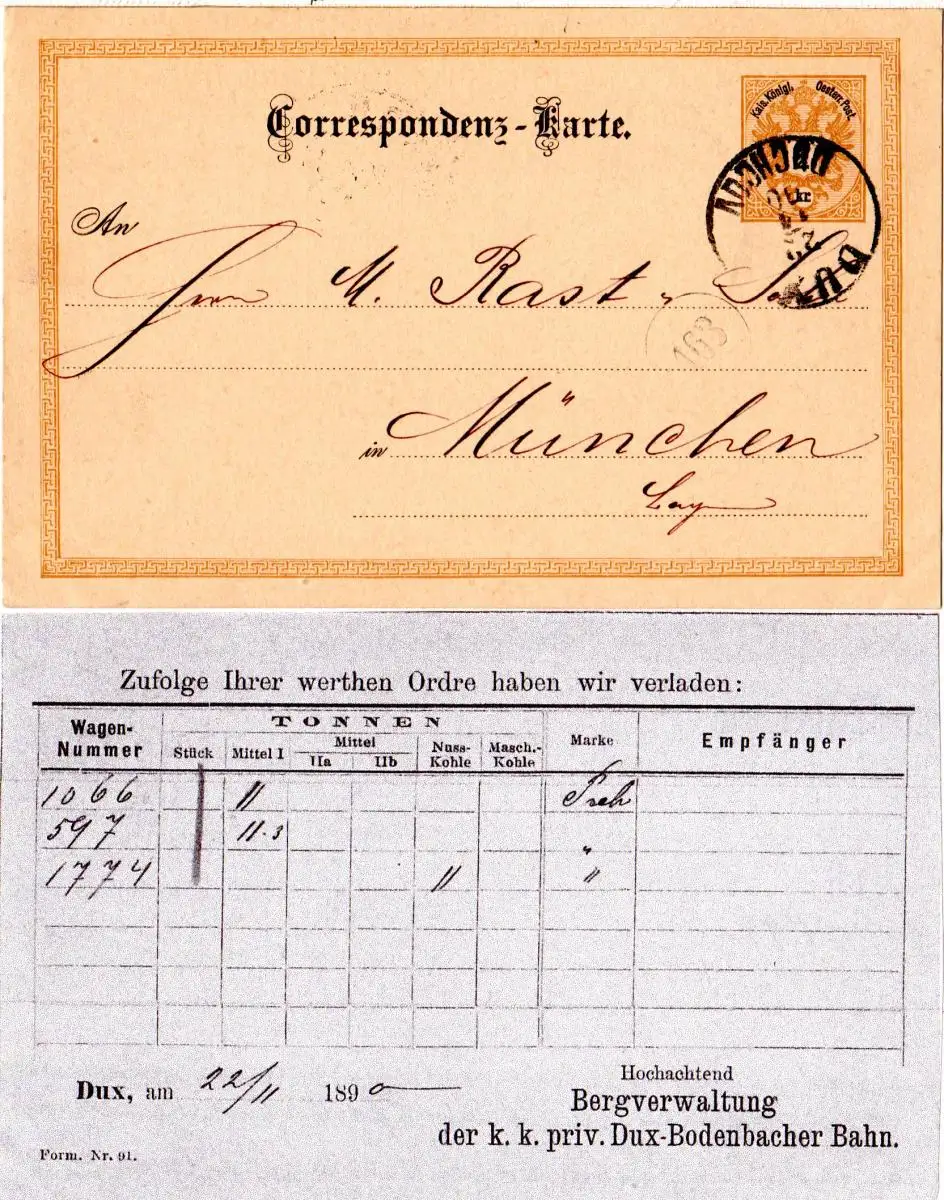 Correspondenz-Karte.
Kais. Königl. Oesterr. Post.
kr.
DUX
DUCHCOV
22
11
90
An
Herrn M. Rast
163
in München
Bay
Zufolge Ihrer werthen Ordre haben wir verladen:
Wagen-Nummer Stück TONNEN Marke Empfänger
Mittel I Mittel IIa IIb Nuss-Kohle Masch.-Kohle
1066 11
597 11.3 "
1774 11 "
Dux, am 22/11 1890
Hochachtend
Bergverwaltung
der k. k. priv. Dux-Bodenbacher Bahn.
Form. Nr. 91.